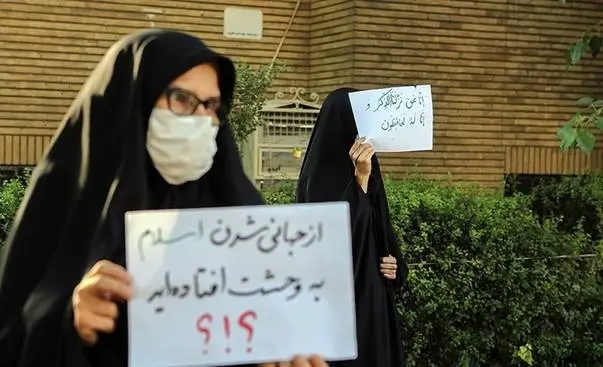 انا نحن نزلنا الذکر و
انا له لحافظون
از جهانی شدن اسلام
به وحشت افتاده‌اید
؟!؟